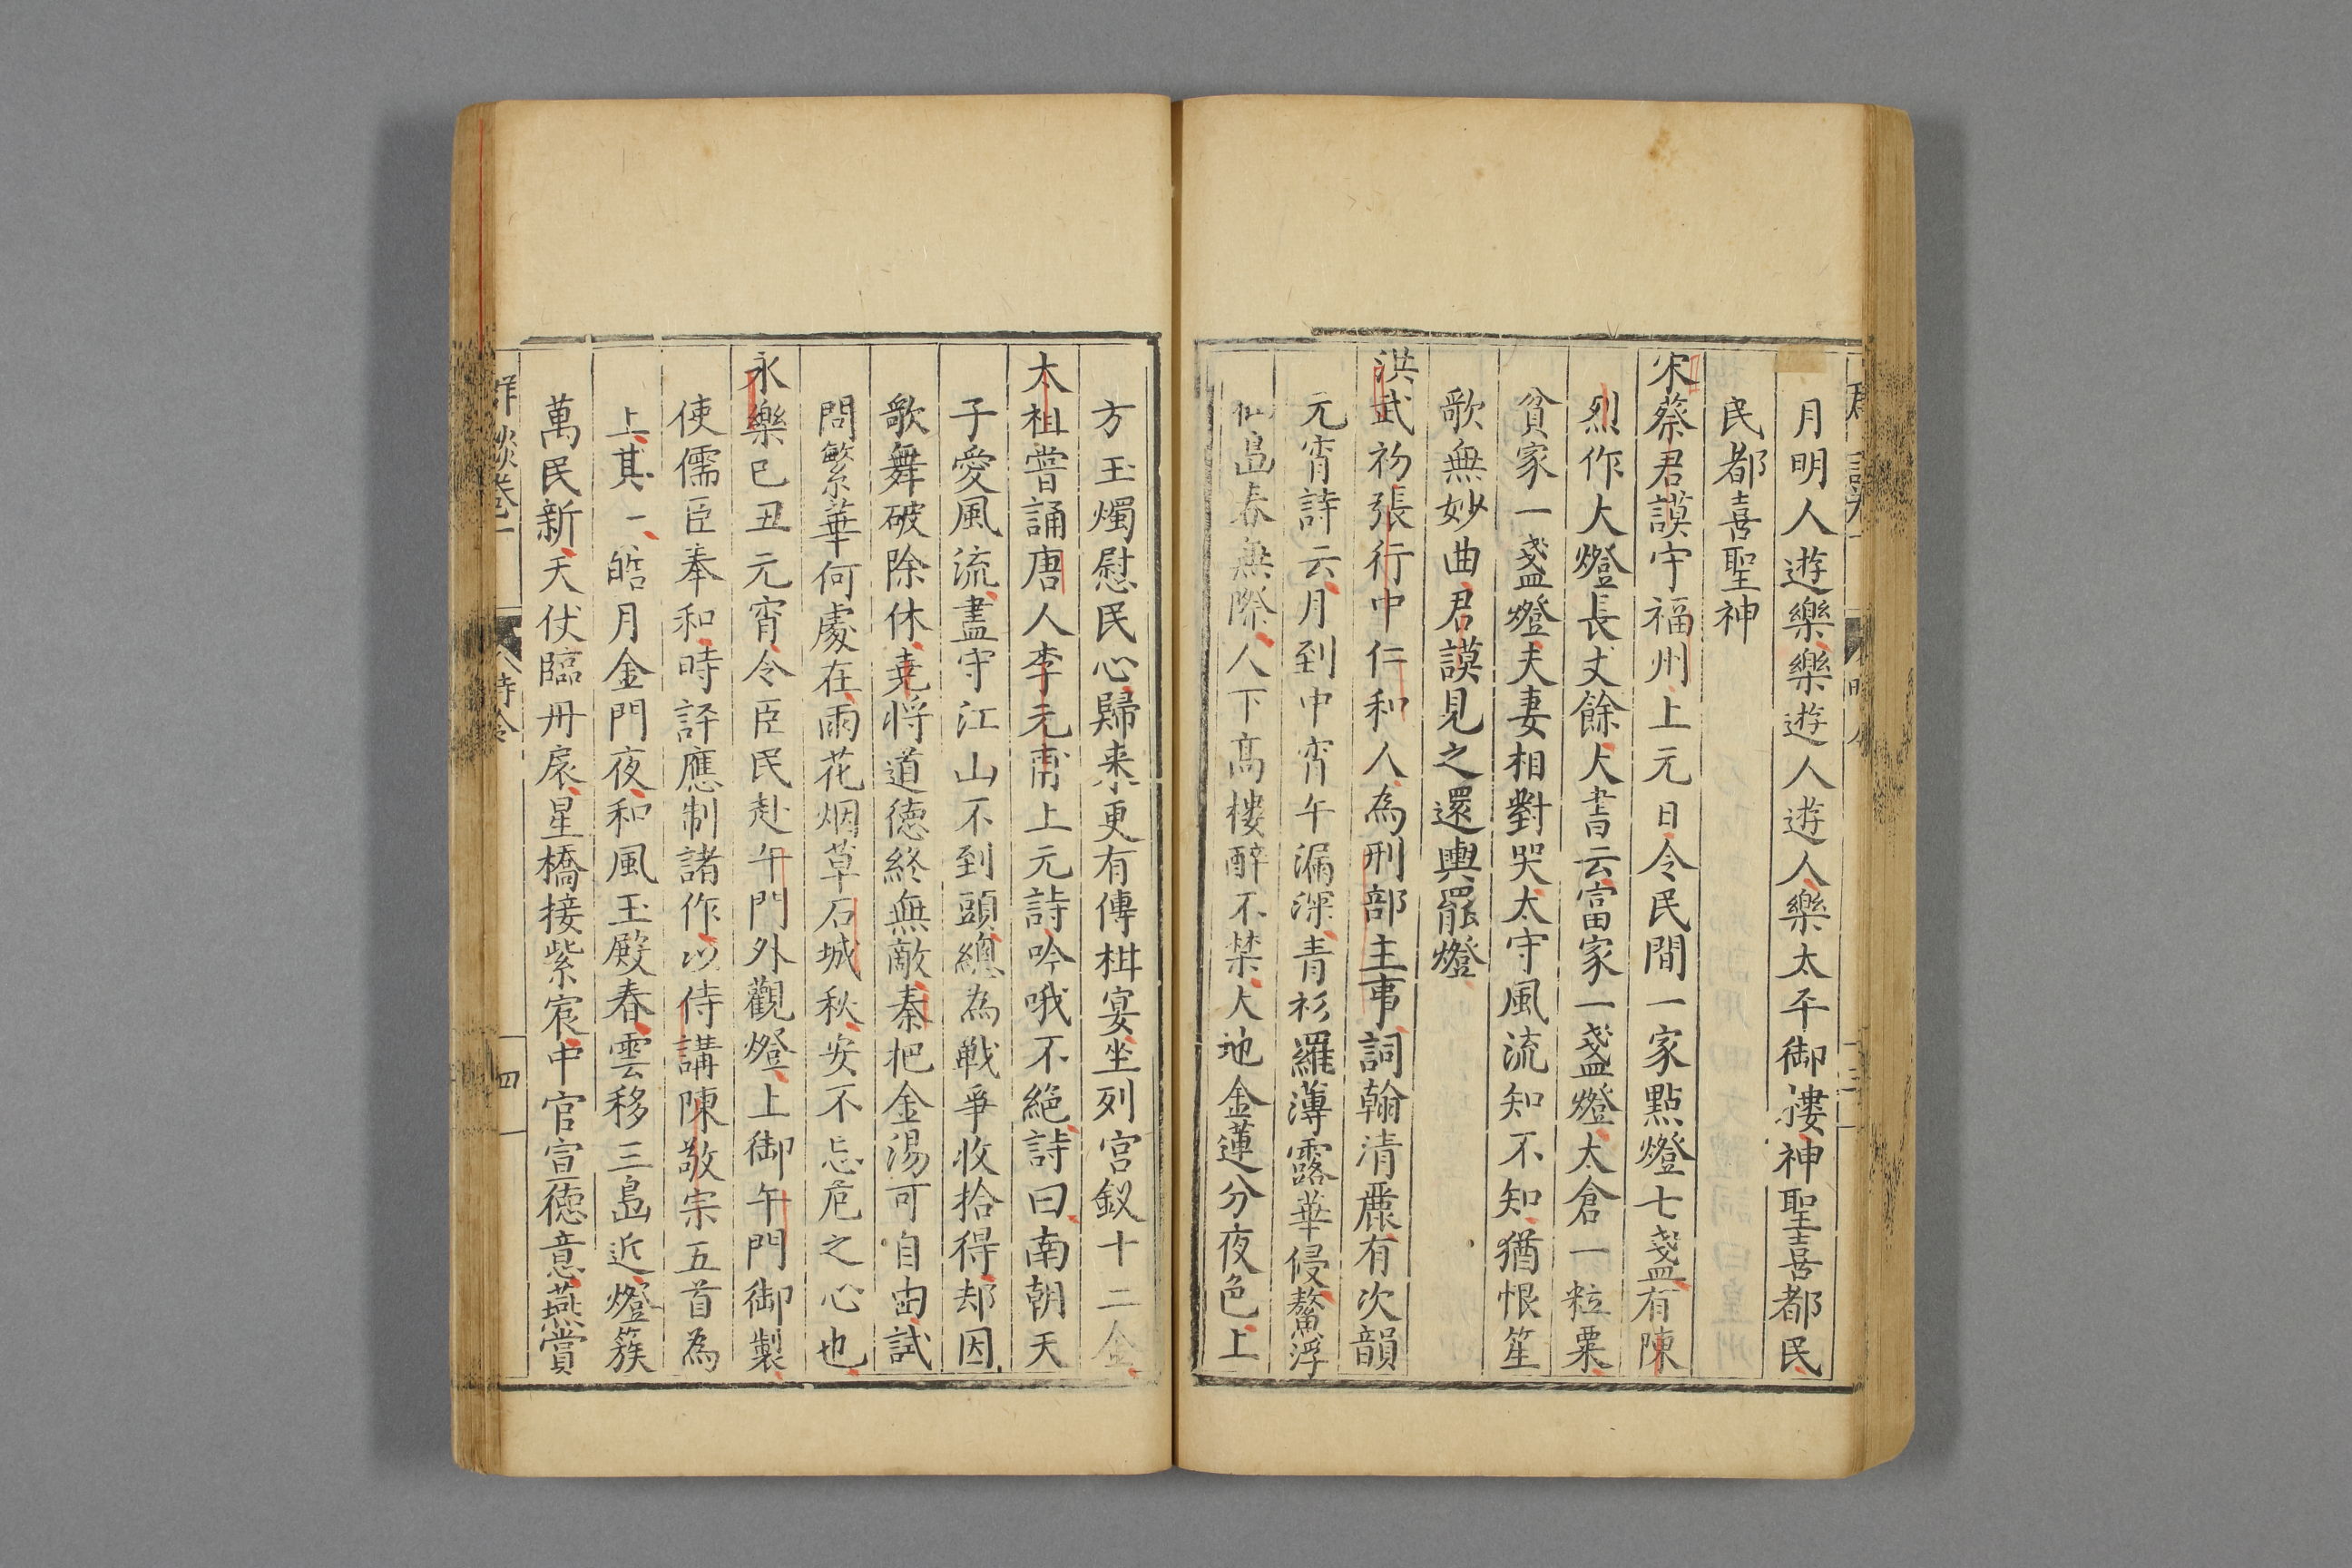 月明人遊樂樂遊人遊人樂太平御摟神聖喜都民
民都喜聖神
宋蔡君謨守福州上元日令民間一家點燈七盞有陳
烈作大燈長丈餘大書云富家一盞燈太倉一粒粟
貧家一盞燈夫妻相對哭太守風流知不知猶恨笙
歌無妙曲君謨見之還輿罷燈
洪武初張行中仁和人為刑部主事詞翰清麗有次韻
元宵詩云月到中宵午漏深青衫羅薄露華侵鰲浮
仙島春無際人下高樓醉不禁大地金蓮分夜色上
方玉燭慰民心歸来更有傳柑宴坐列宮釵十二金
太祖嘗誦唐人李元甫上元詩吟哦不絕詩曰南朝天
子愛風流盡守江山不到頭總為戰爭收拾得却因
歌舞破除休堯將道德終無敵秦把金湯可自由試
問繁華何處在雨花烟草石城秋安不忘危之心也
永樂己丑元宵令臣民赴午門外觀燈上御午門御製
使儒臣奉和時評應制諸作以侍講陳敬宗五首為
上其一皓月金門夜和風玉殿春雲移三島近燈簇
萬民新天仗臨丹扆星橋接紫宸中官宣德意燕賞
卷一
時令
四